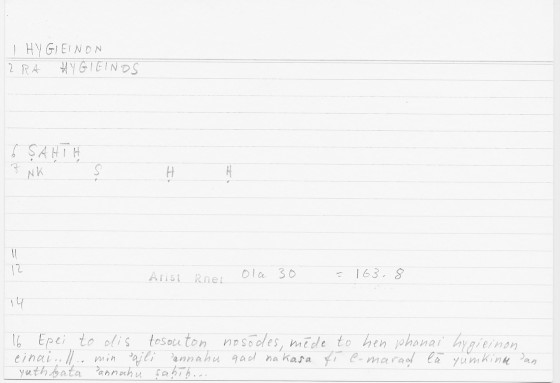 1 HYGIEINON
2 RA HYGIEINOS
6 ṢAḤĪḤ
7 NK Ṣ Ḥ Ḥ
11
12 Arist Rhet 01a 30 = 163.8
14
16 Epei to dis tosouton nosōdes, mēde to hen phanai hygieinon
einai..//.. min ʾajli ʾannahu qad nakasa fī l-maraḍ lā yumkinu ʾan
yuthbata ʾannahu ṣaḥīḥ...